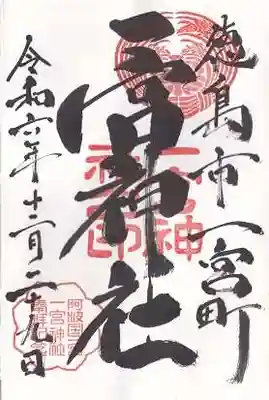 徳島市一宮町
一宮神社
令和六年十二月二十九日
一宮神社印
一宮神社